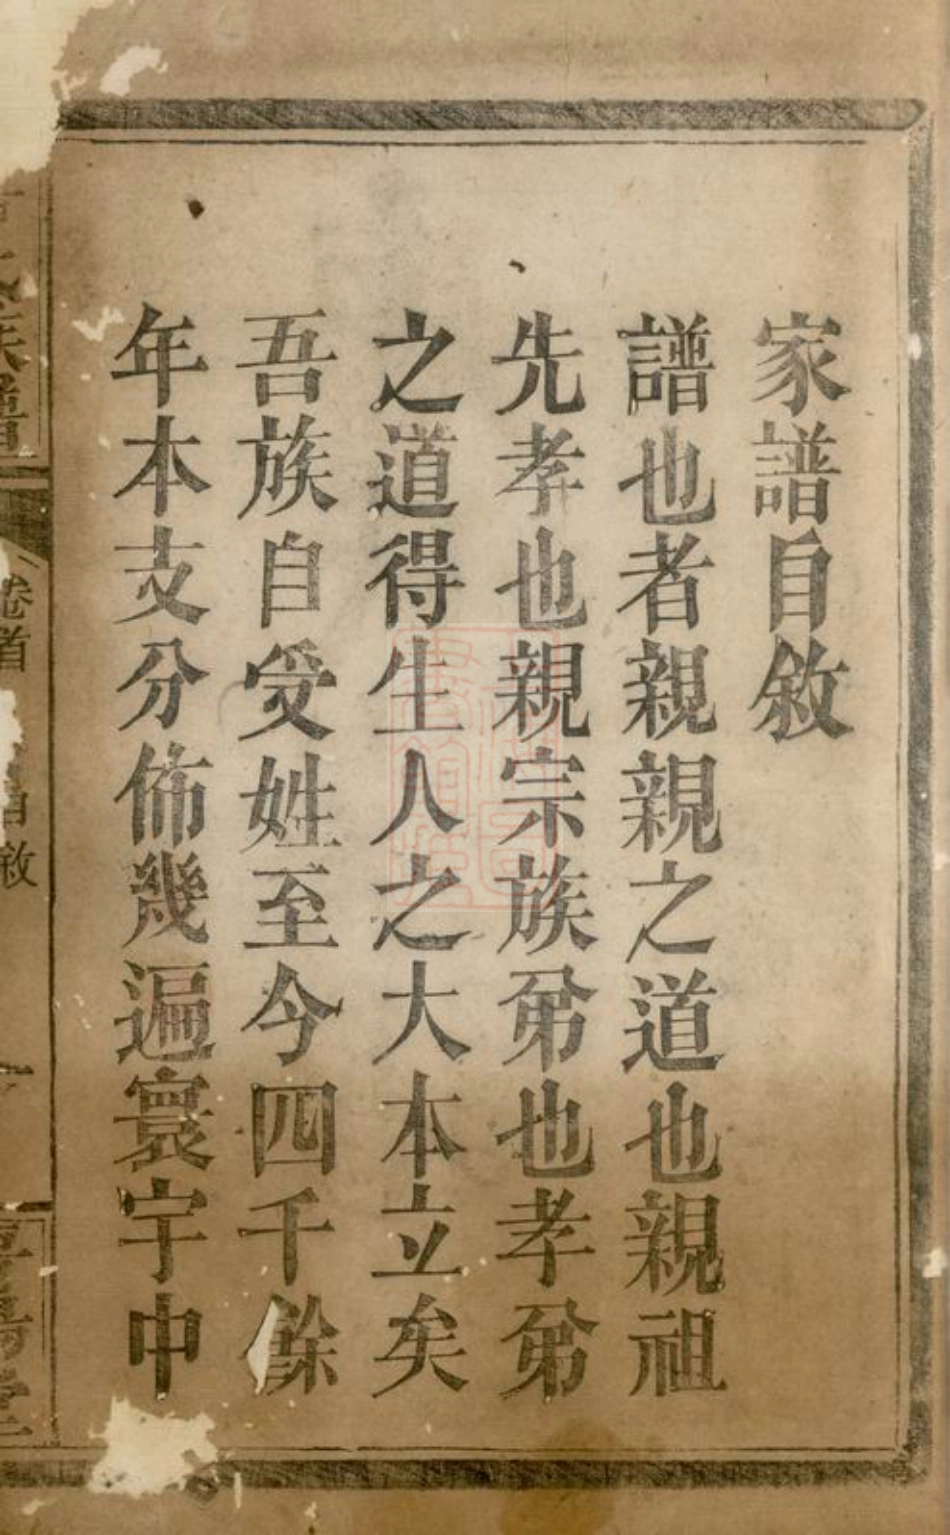 家譜自敘
譜也者親親之道也親祖
先孝也親宗族弟也孝弟
之道得生人之大本立矣
吾族自受姓至今四千餘
年本支分佈幾遍寰宇中
氏族譜
卷首
自敘